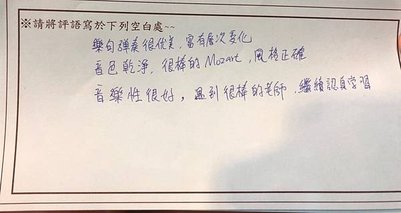 ※請將評語寫於下列空白處~~
樂句彈奏很優美,富有層次變化
音色乾淨,很棒的Mozart,風格正確
音樂性很好,遇到很棒的老師,繼續認真學習